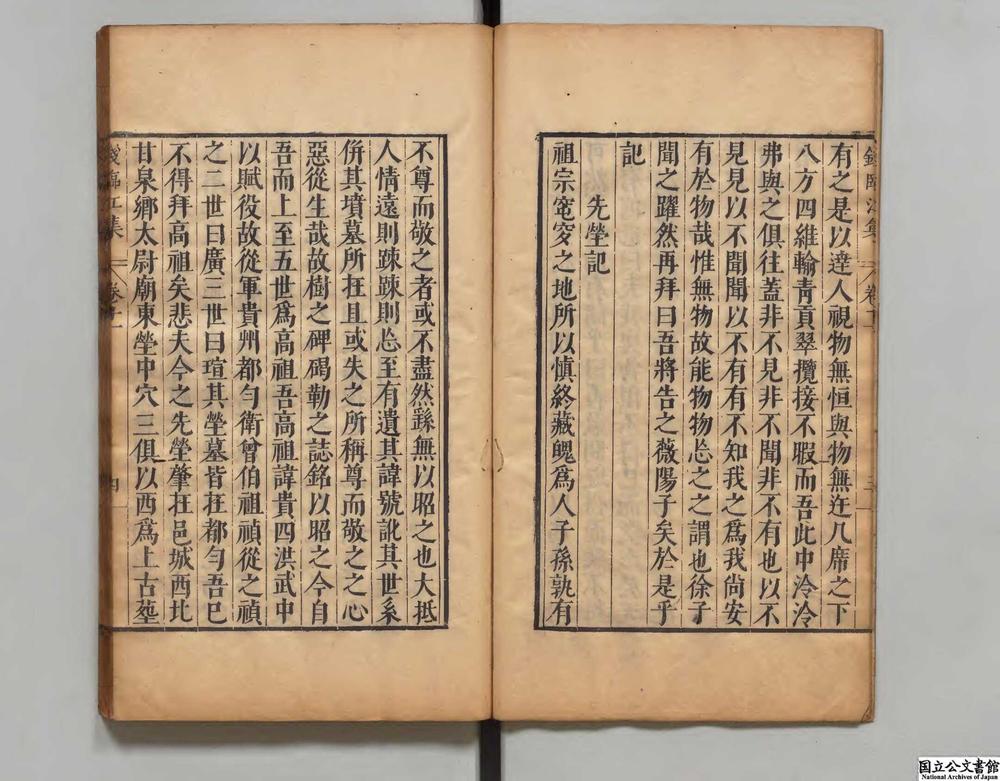 有之是以達人視物無恒與物無迕几席之下
八方四維輸青貢翠攬接不暇而吾此中泠泠
弗與之俱往蓋非不見非不聞非不有也以不
見見以不聞聞以不有有不知我之爲我尚安
有於物哉惟無物故能物物忘之之謂也徐子
聞之躍然再拜曰吾將告之薇陽子矣於是乎
記
先塋記
祖宗窀穸之地所以慎終藏魄爲人子孫孰有
不尊而敬之者或不盡然繇無以昭之也大抵
人情遠則踈踈則忘至有遺其諱號訛其世系
併其墳墓所在且或失之所稱尊而敬之之心
惡從生哉故樹之碑碣勒之誌銘以昭之今自
吾而上至五世爲高祖吾高祖諱貴四洪武中
以賦役故從軍貴州都勻衛曾伯祖禎從之禎
之二世曰廣三世曰瑄其塋墓皆在都勻吾已
不得拜高祖矣悲夫今之先塋肇在邑城西北
甘泉鄉太尉廟東塋中穴三俱以西爲上古塟
錢臨江集 卷十一 四
国立公文書館
National Archives of Japan